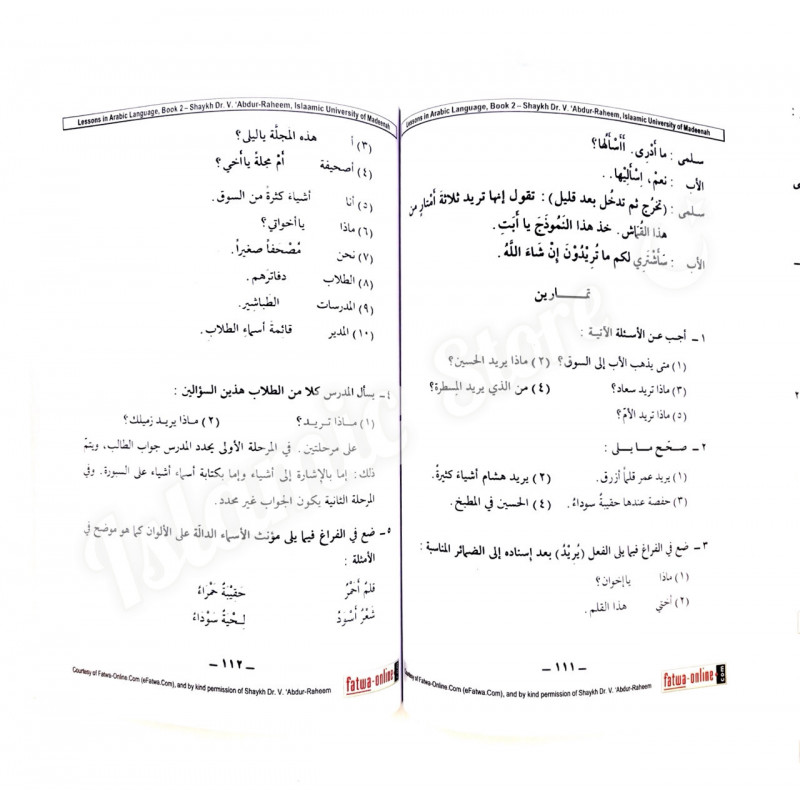 Lessons in Arabic Language, Book 2 – Shaykh Dr. V. 'Abdur-Raheem, Islaamic University of Madeenah
سلمى : ما أدْرِى. أَأَسْأَلُهَا؟
الأب : نعمْ، اِسْأَلِيْها . .
سلمى : (تخرُج ثم تدخُل بعد قليل) : تقول إنها تريد ثلاثةَ أمْتارٍ من
هذا القُمَاش. خذ هذا النَمُوذَجَ يا أبَتِ.
الأب : سَأَشْتَرِي لكم ما تُرِيْدُوْنَ إنْ شَاءَ اللَّهُ.
تمـــارين
١ – أجب عن الأسئلة الآتية :
(١) متى يذهب الأب إلى السوق؟ (٢) ماذا يريد الحسين؟
(٣) ماذا تريد سعاد؟ (٤) من الذي يريد المِسطرة؟
(٥) ماذا تريد الأمّ؟
٢ – صحّح ما يـلى :
(١) يريد عمر قلماً أزرق. (٢) يريد هشام أشياءَ كثيرةً.
(٣) حفصة عندها حقيبةٌ سوداءُ. (٤) الحسين في المطبخ.
٣ – ضع في الفراغ فيما يلى الفعل (يُرِيْدُ) بعد إسناده إلى الضمائر المناسبة :
(١) ماذا ياإخوان؟
(٢) أختي هذا القلم.
– ١١١ –
Courtesy of Fatwa-Online.Com (eFatwa.Com), and by kind permission of Shaykh Dr. V. 'Abdur-Raheem
fatwa-online.com
Lessons in Arabic Language, Book 2 – Shaykh Dr. V. 'Abdur-Raheem, Islaamic University of Madeenah
(٣) أ هذه المجلّة ياليلى؟
(٤) أصحيفة أمْ مجلةً ياأخي؟
(٥) أنا أشياءَ كثرةً من السوق.
(٦) ماذا ياأخواتي؟
(٧) نحن مُصْحَفاً صغيراً.
(٨) الطلاب دفاترَهم.
(٩) المدرسات الطباشير.
(١٠) المدير قائِمةَ أسماءِ الطلابِ.
٤– يسأل المدرس كلا من الطلاب هذين السؤالين :
(١) مــاذا تريـد؟ (٢) مـاذا يريـد زميلك؟
على مرحلتين. في المرحلة الأولى يحدد المدرس جواب الطالب، ويتمّ
ذلك : إما بالإشارة إلى أشياء وإما بكتابة أسماء أشياء على السورة. وفي
المرحلة الثانية يكون الجواب غير محدد.
٥ – ضع في الفراغ فيما يلى مؤنث الأسماء الدالّة على الألوان كما هو موضح في
الأمثلة :
قلمٌ أَحْمَرُ حَقِيْبَةٌ حَمْرَاءُ
شَعْرٌ أَسْوَدُ لِحْيَةٌ سَوْدَاءُ
– ١١٢ –
Courtesy of Fatwa-Online.Com (eFatwa.Com), and by kind permission of Shaykh Dr. V. 'Abdur-Raheem
fatwa-online
Islamic Store